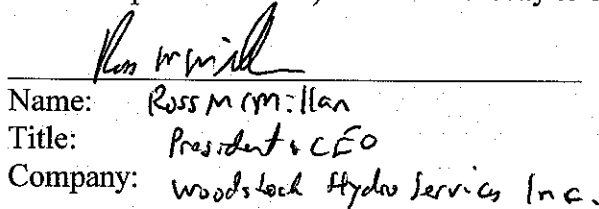 Ross McMillan
Name: Ross McMillan
Title: President & CEO
Company: Woodstock Hydro Services Inc.